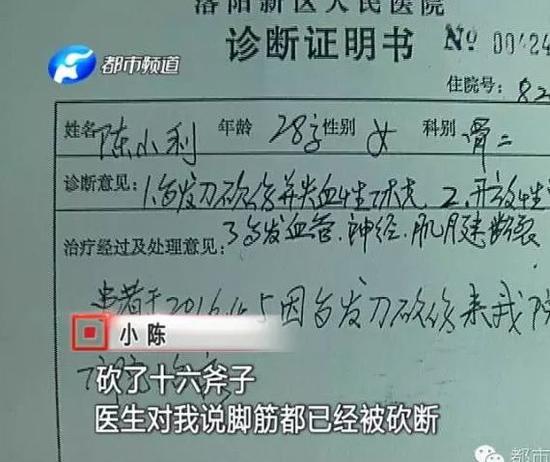 洛阳新区人民医院
诊断证明书 Nº 00424
都市频道
住院号: 82
姓名 陈小利 年龄 28岁 性别 女 科别 骨二
诊断意见: 1.多发刀砍伤并失血性休克 2.开放性
3多发血管.神经.肌腱断裂
治疗经过及处理意见:
患者于2016.6.5因多发刀砍伤来我院
小陈
砍了十六斧子
医生对我说脚筋都已经被砍断
都市